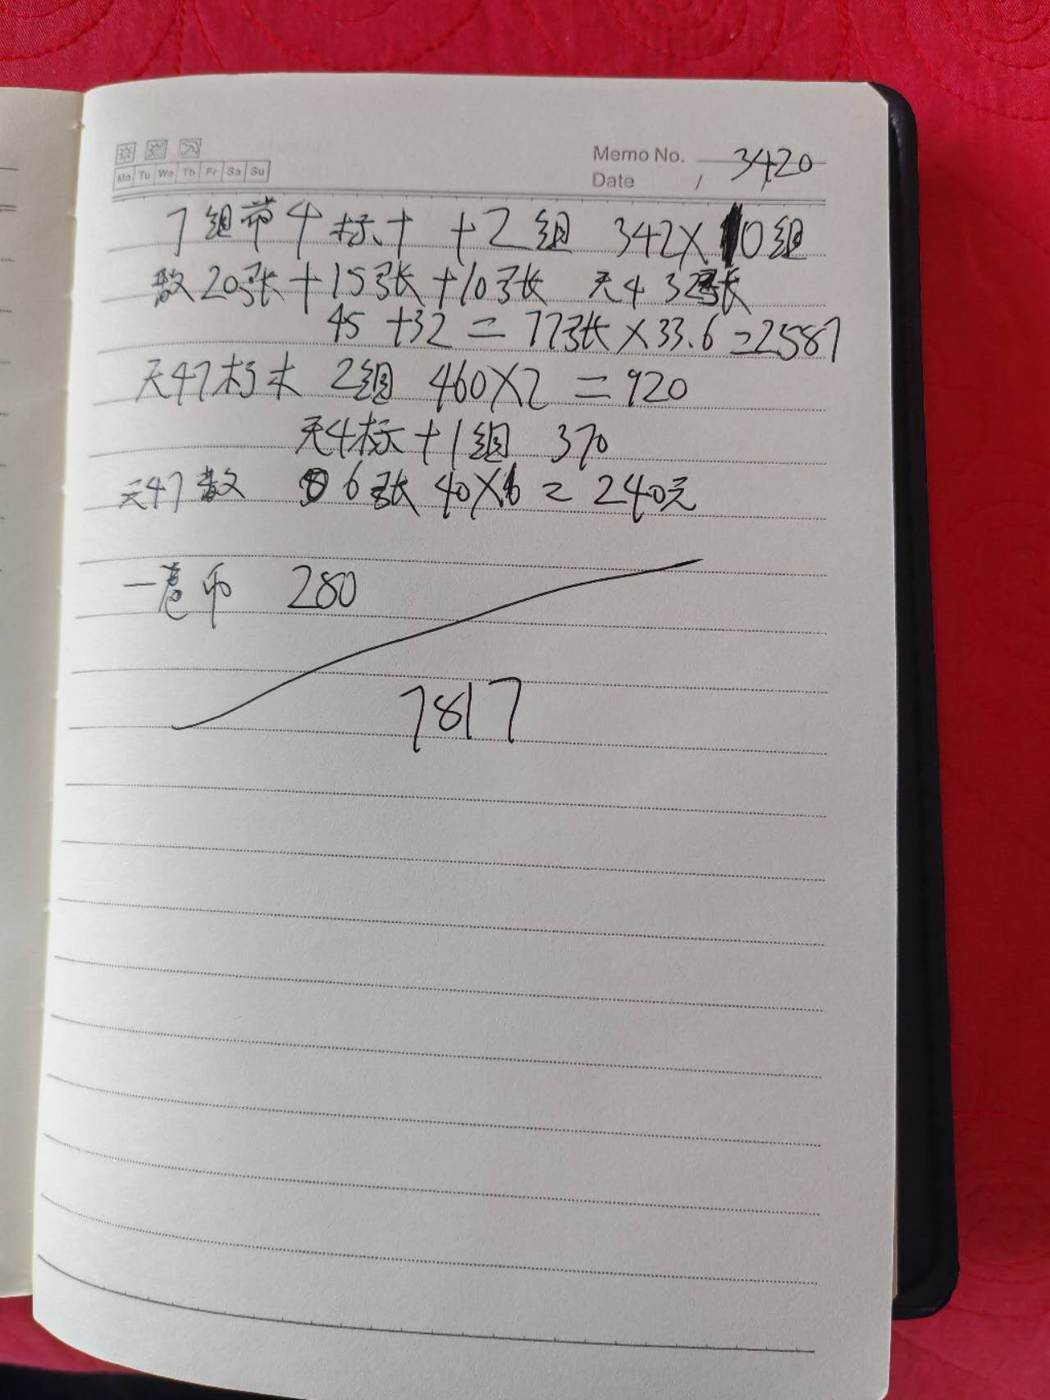 Memo No. 3420
Mo Tu We Th Fr Sa Su
Date /
7组带4标十 +2组 342X10组
散20张+15张+10张 天4 32张
45+32=77张×33.6=2587
天47标 2组 460X2=920
天4标十1组 370
天47散 6张 40X6=240元
一卷币 280
7817